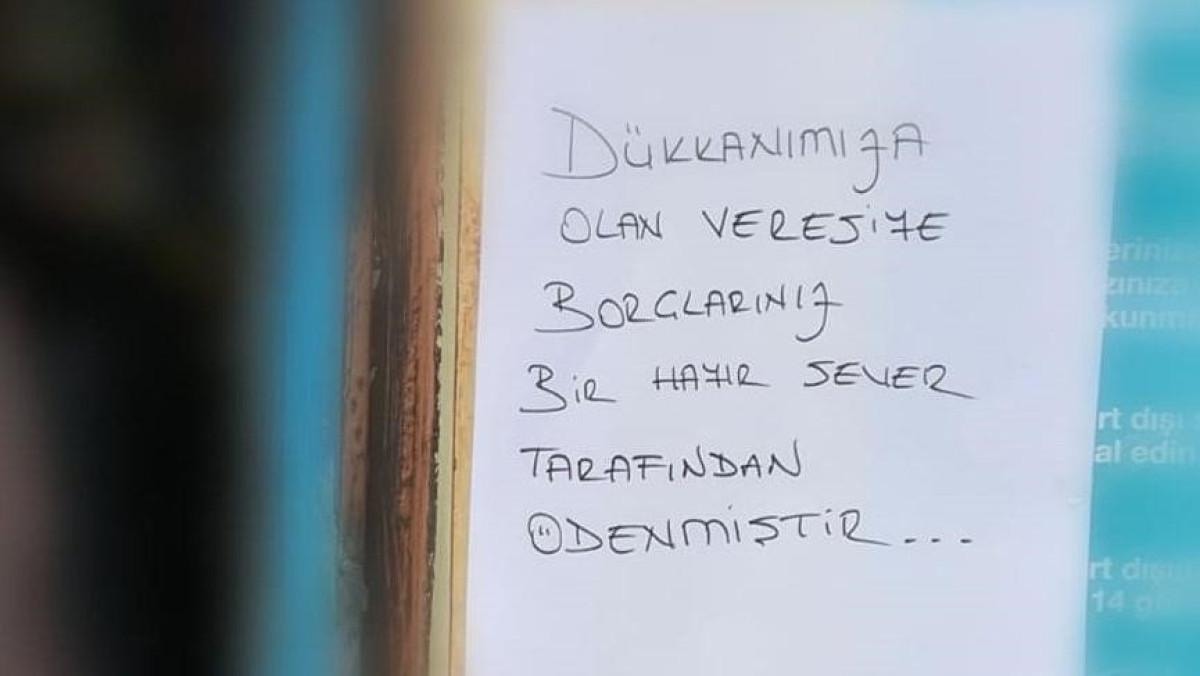 DÜKKANIMIZA
OLAN VERESİYE
BORÇLARINIZ
BİR HAYIR SEVER
TARAFINDAN
ÖDENMİŞTİR...
rt dışı
al edin
14